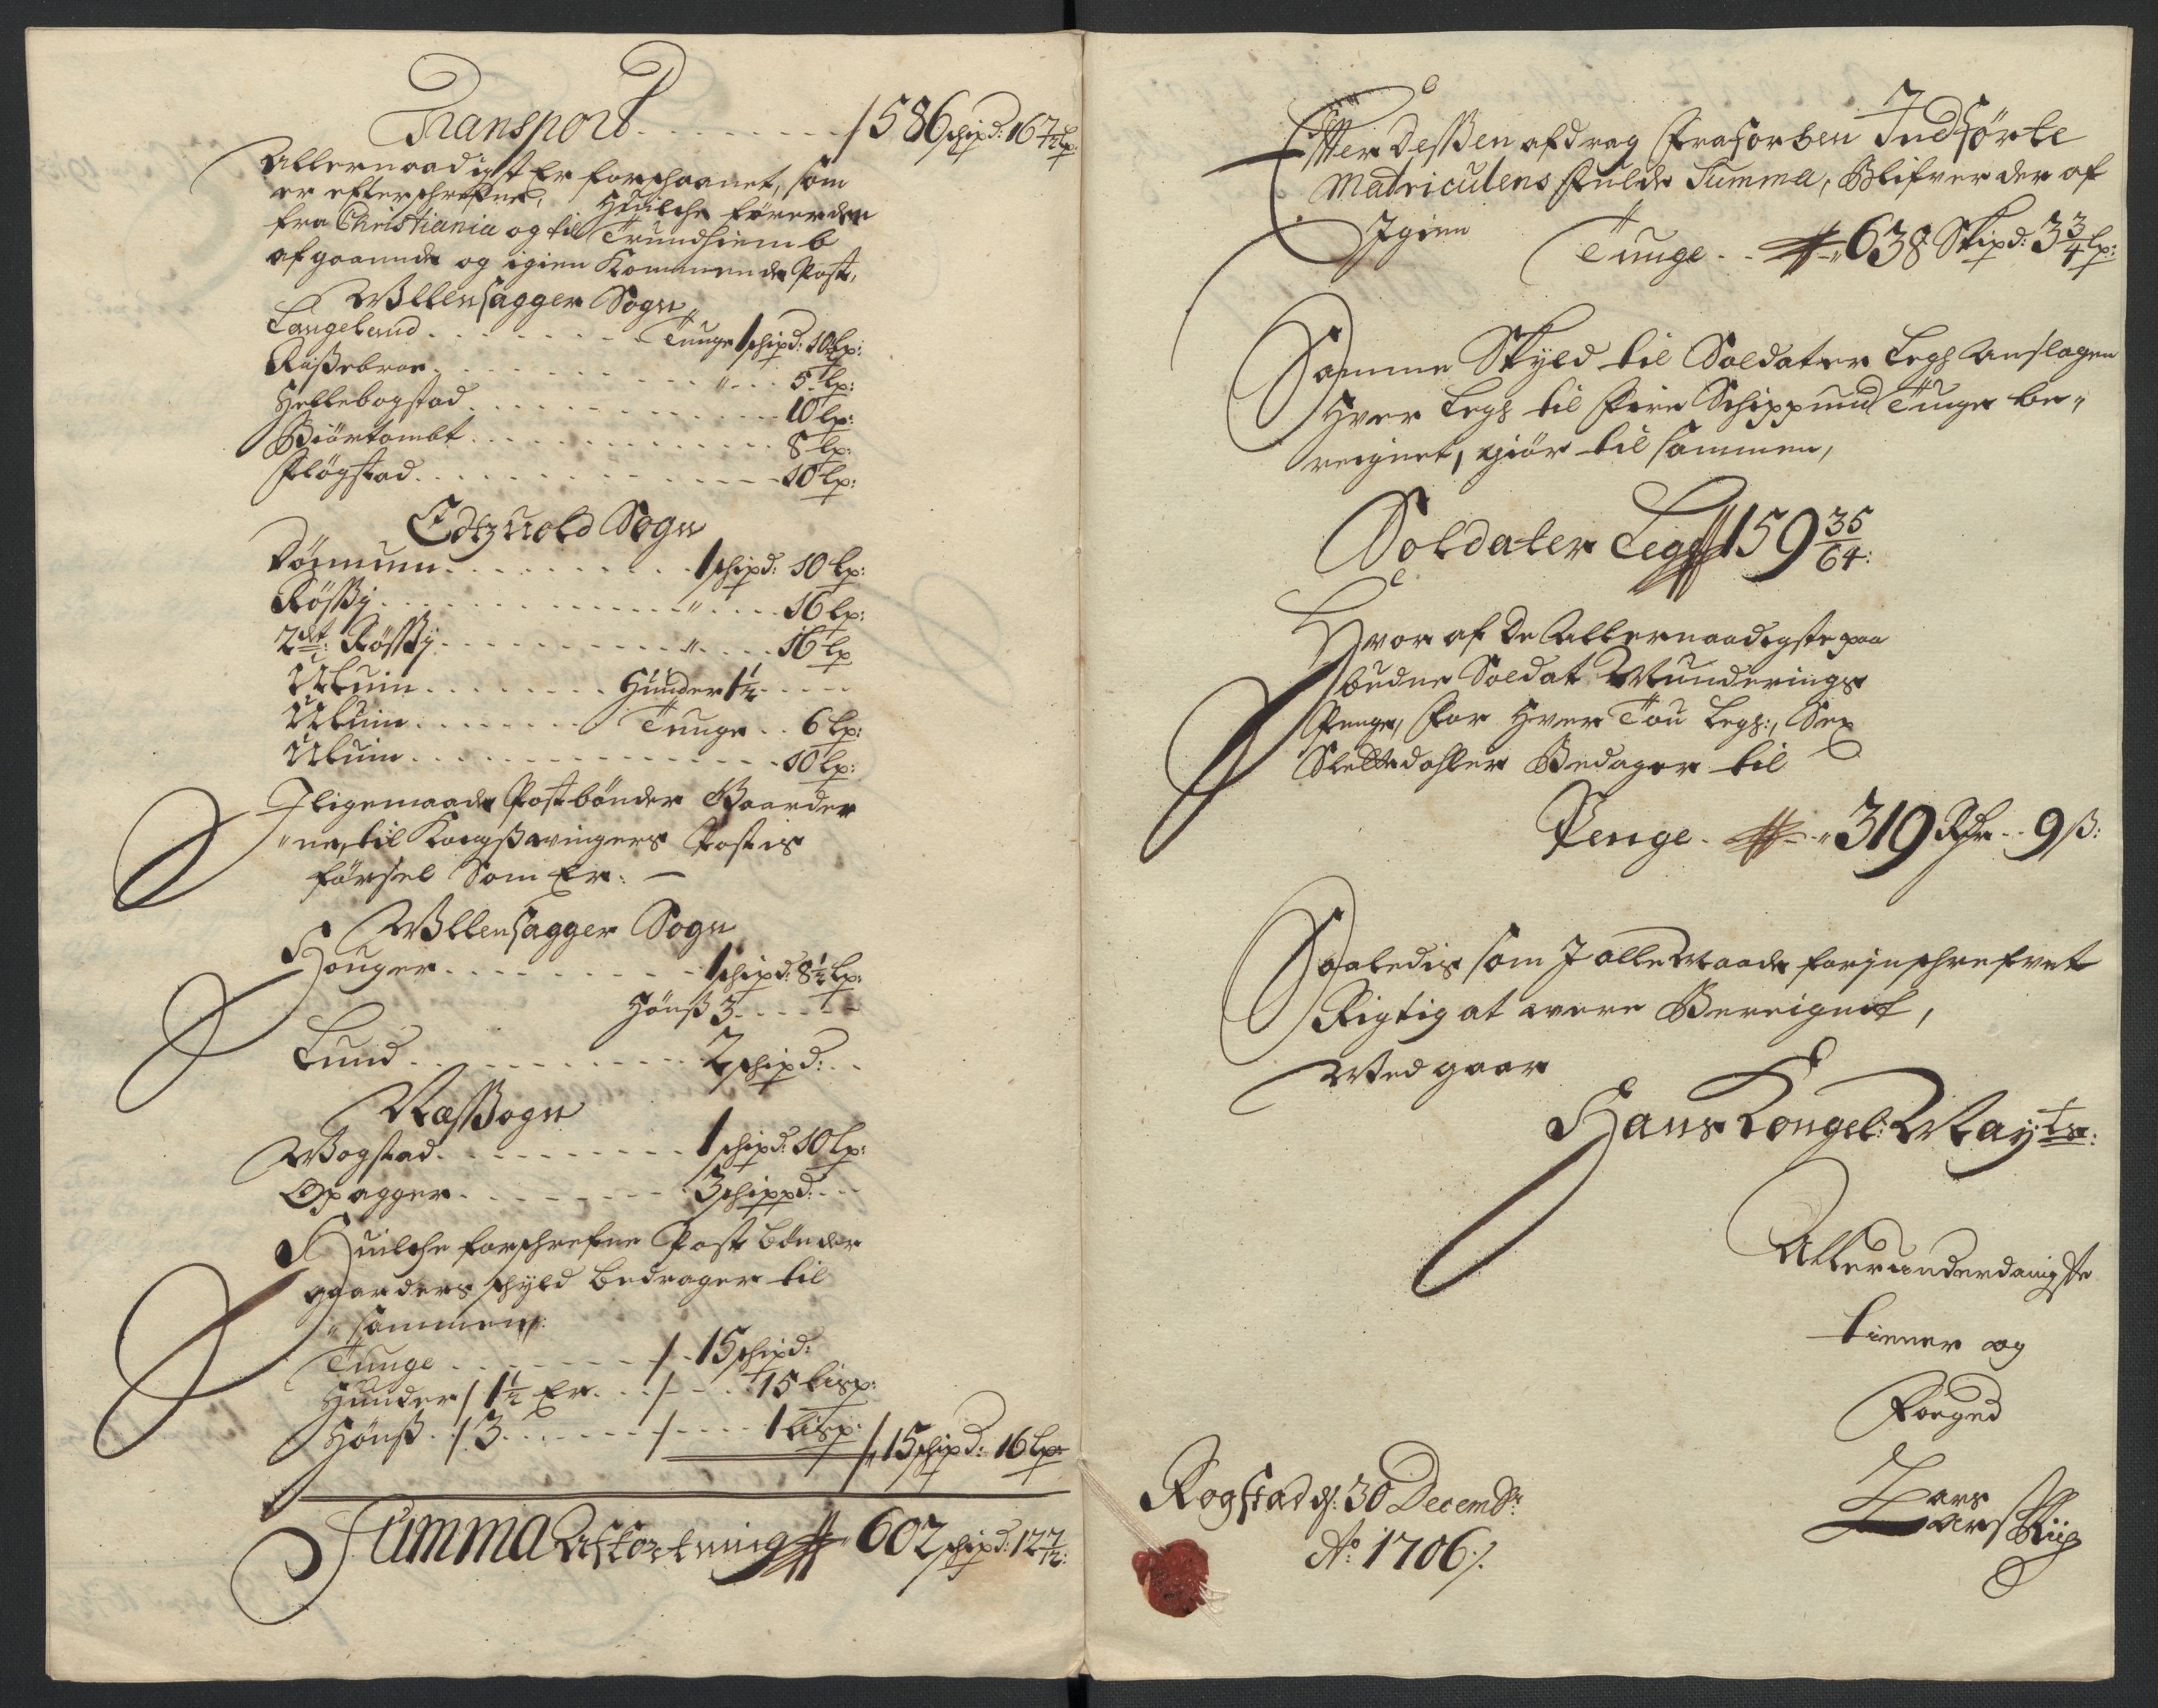 Transport . . . . . . . . . / 586 schipd: 16 7/12 lp:
Allernaadigst Er forschaanet, som
er efterschrefne, Huilche fører den
fra Christiania og til Trundhiemb
afgaaende og igien Kommende Post,
Wllensagger Sogn
Langeland . . . . . . . . Tunge 1 schipd: 10 lp:
. . . . . . . . . . " . . . 5 lp:
Hellebogstad . . . . . . . . . . 10 lp:
Biörtombt . . . . . . . . . . 8 lp:
Flögstad . . . . . . . . . . 10 lp:
Edtzuold Sogn
. . . . . . . . . 1 schipd: 10 lp:
Rösßy . . . . . . . . . . " . . . . 16 lp:
2det: Rösßy . . . . . . . . . " . . . . 16 lp
Uluin . . . . . . . . Hunder 1 1/2 . . . .
Uluin . . . . . . . Tunge . . 6 lp:
Uluin . . . . . . . . . . . . 10 lp:
J ligemaade Postbönder Gaarder
"ne, til Kongswingers Postis
förssel Som Er: —
Wllensagger Sogn
Houger . . . . . . . . . 1 schipd: 8 1/2 lp:
Hönß 3 . . . . . .
Lund . . . . . . . . . . . 2 schipd: . .
Næsßogn
Wogstad . . . . . . . . . . 1 schipd: 10 lp:
Opagger . . . . . . . . 3 schippd: . . .
Huilche forschrefne Post bönder
gaarders schyld bedrager til
"sammen:
Tunge . . . . . . . . / . 15 schipd:
Hunder / 1 1/2 Er . . . / . . . 15 lisp:
Hönß . / 3 . . . . . . . / . . . . 1 lisp: / 15 schipd: 16 lp:
Summa Afkortning 602 schipd: 12 7/12:
Efter Desßen afdrag fra forben Indförte
Matriculens fulde Summa, Blifver der af
Igien
Tunge . . 638 Skipd: 3 3/4 lp:
Samme Skyld til Soldater Legh anslagen
Hver Legh til fire Schippund Tunge be"
reignet, giör til sammen,
Soldater Legh 159 35/64:
Hvor af de Allernaadigste paa
budne Soldat Munderings
Penge, for Hver Tou Legh:, Sex
Slettedahler Bedager til
Penge . " 319 Rdr . . 9 ß:
Saaledis som J alle Maade forinschrefvet
Rigtig at were Bereignet,
Wedgaar
Hans Kongel: Mayts:
Allerunderdanigste
tiener og
Foeged
Rogstad d: 30 Decembr:
Ao: 1706 ./.
Lars